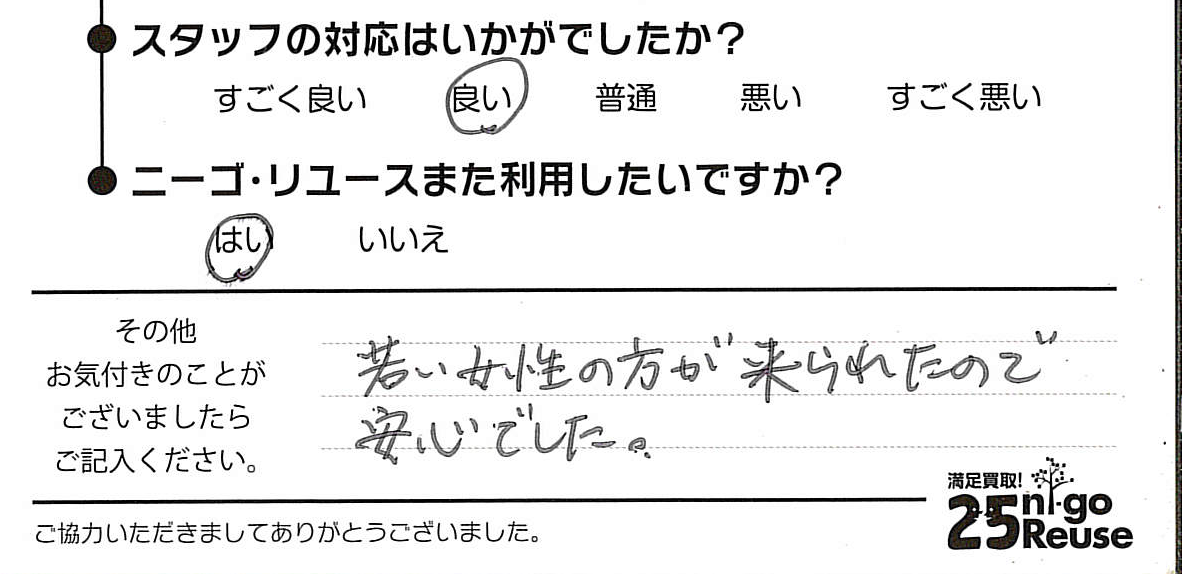 スタッフの対応はいかがでしたか？
すごく良い 良い 普通 悪い すごく悪い
ニーゴ・リユースまた利用したいですか？
はい いいえ
その他
お気付きのことが
ございましたら
ご記入ください。
若い女性の方が来られたので
安心でした。
ご協力いただきましてありがとうございました。
満足買取!
25 ni-go
Reuse